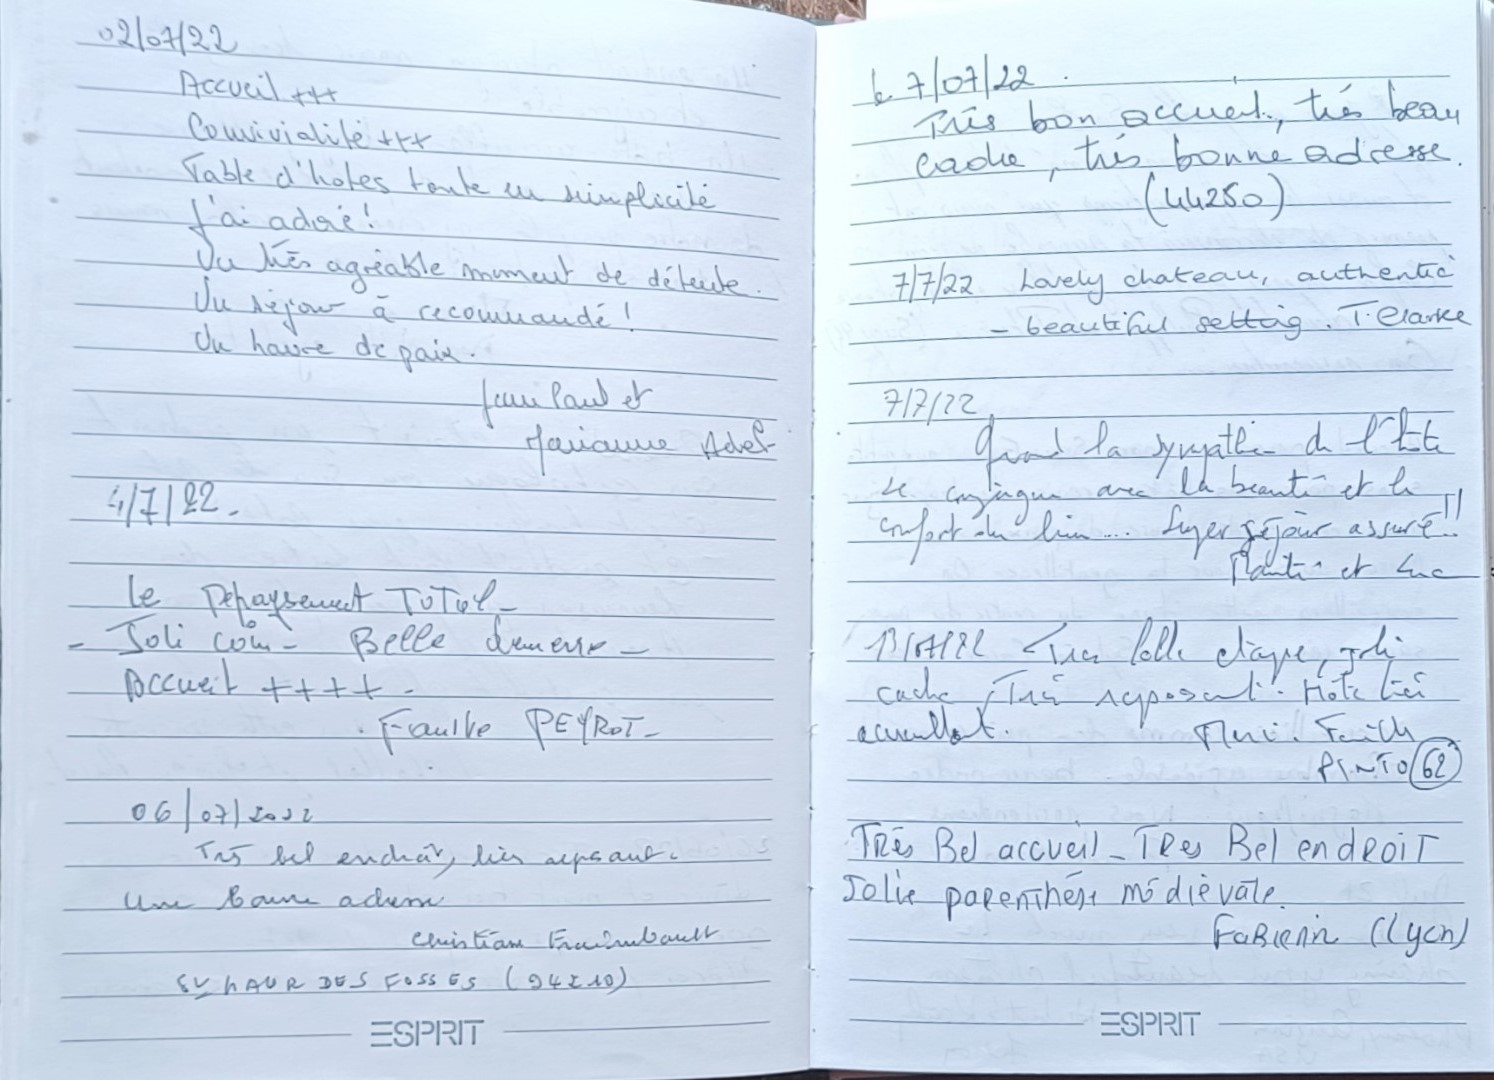 02/07/22
Accueil +++
Convivialité +++
Table d'hôtes toute en simplicité
J'ai adoré !
Un très agréable moment de détente.
Un séjour à recommandé !
Un havre de paix.
Jean Paul et
Marianne
4/7/22.
Le Depaysement TOTAL -
- Joli coin - Belle demeure -
Accueil ++++ -
PEYROT -
06/07/2022
Très bel endroit, très reposant.
Une bonne adresse
Christian Fraimbault
ST MAUR DES FOSSES (94210)
ESPRIT
Le 7/07/22
Très bon accueil, très beau
cadre, très bonne adresse.
(44250)
7/7/22 Lovely chateau, authentic
- beautiful setting. T. Clarke
7/7/22
Quand la sympathie de l'hôte
se conjugue avec la beauté et le
confort du lieu .... Super séjour assuré !!
et Luc
13/07/22 Très belle étape, joli
cadre, Très reposant. Hôte très
accueillant.
PINTO (62)
Très Bel accueil - Tres Bel endroit
Jolie parenthèse médièvale.
FABIENN (Lyon)
ESPRIT